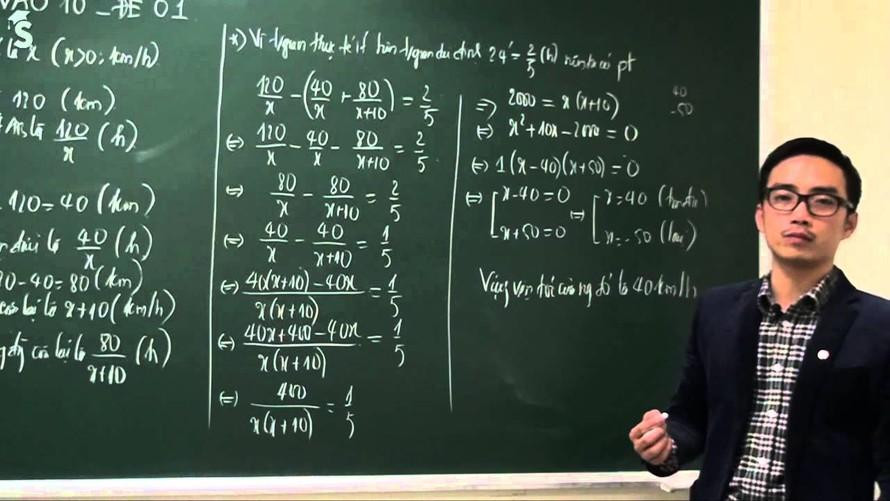 VÀO 10 _ ĐỀ 01
là x (x>0; km/h)
120 (km)
là 120/x (h)
120 = 40 (km)
là 40/x (h)
-40 = 80 (km)
còn lại là x+10 (km/h)
còn lại là 80/(x+10) (h)
*) Vì t/gian thực tế ít hơn t/gian dự định 24' = 2/5 (h) nên ta có pt
120/x - (40/x + 80/(x+10)) = 2/5
(=) 120/x - 40/x - 80/(x+10) = 2/5
(=) 80/x - 80/(x+10) = 2/5
(=) 40/x - 40/(x+10) = 1/5
(=) (40(x+10) - 40x)/(x(x+10)) = 1/5
(=) (40x+400-40x)/(x(x+10)) = 1/5
(=) 400/(x(x+10)) = 1/5
40
-50
=) 2000 = x(x+10)
(=) x² + 10x - 2000 = 0
(=) 1(x-40)(x+50) = 0
(=) [ x-40=0 (=) [ x=40 (
x+50=0 x=-50 (loại)
Vậy vận tốc của ng đó là 40km/h
S